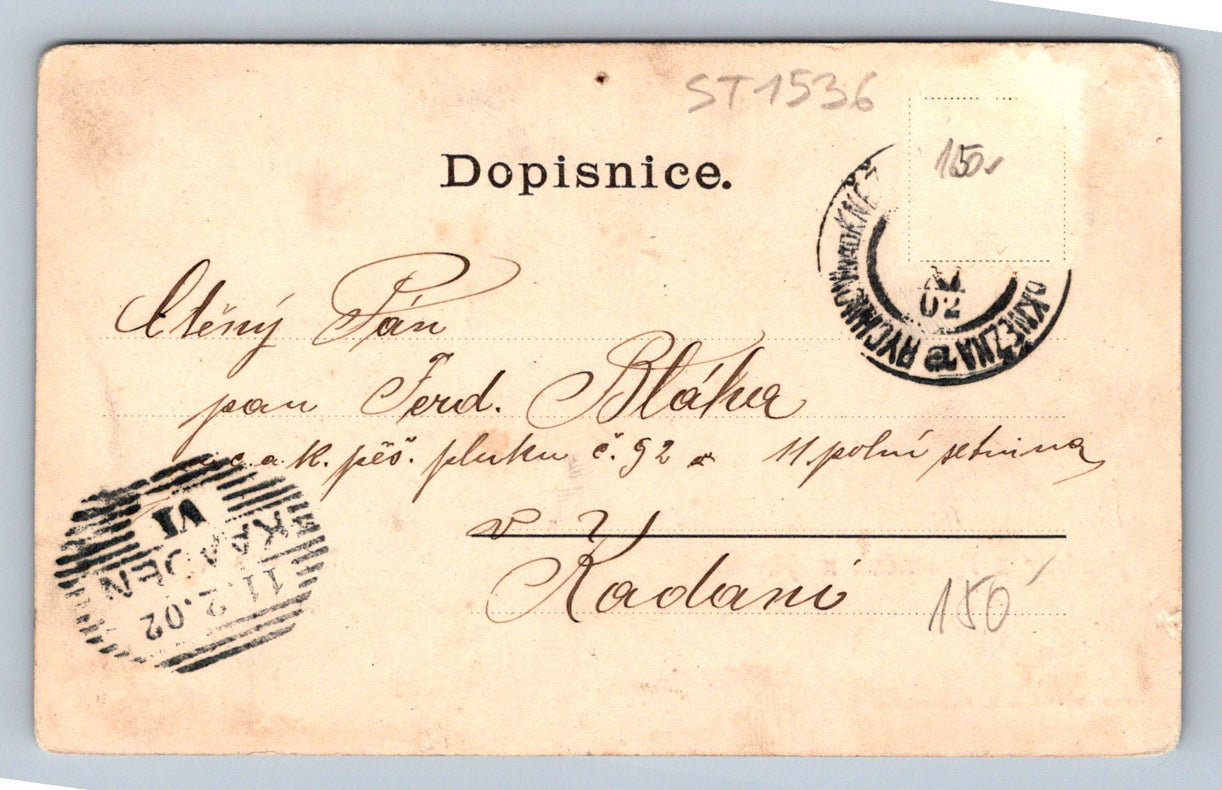 ST1536
150,-
Dopisnice.
RYCHNOV NAD KNĚŽ
KNĚŽNA
02
Ctěný Pán
pan Ferd. Bláha
u c. a k. pěš. pluku č. 92 11. polní setnina
v
Kadani
VI
KAADEN
11.2.02
150